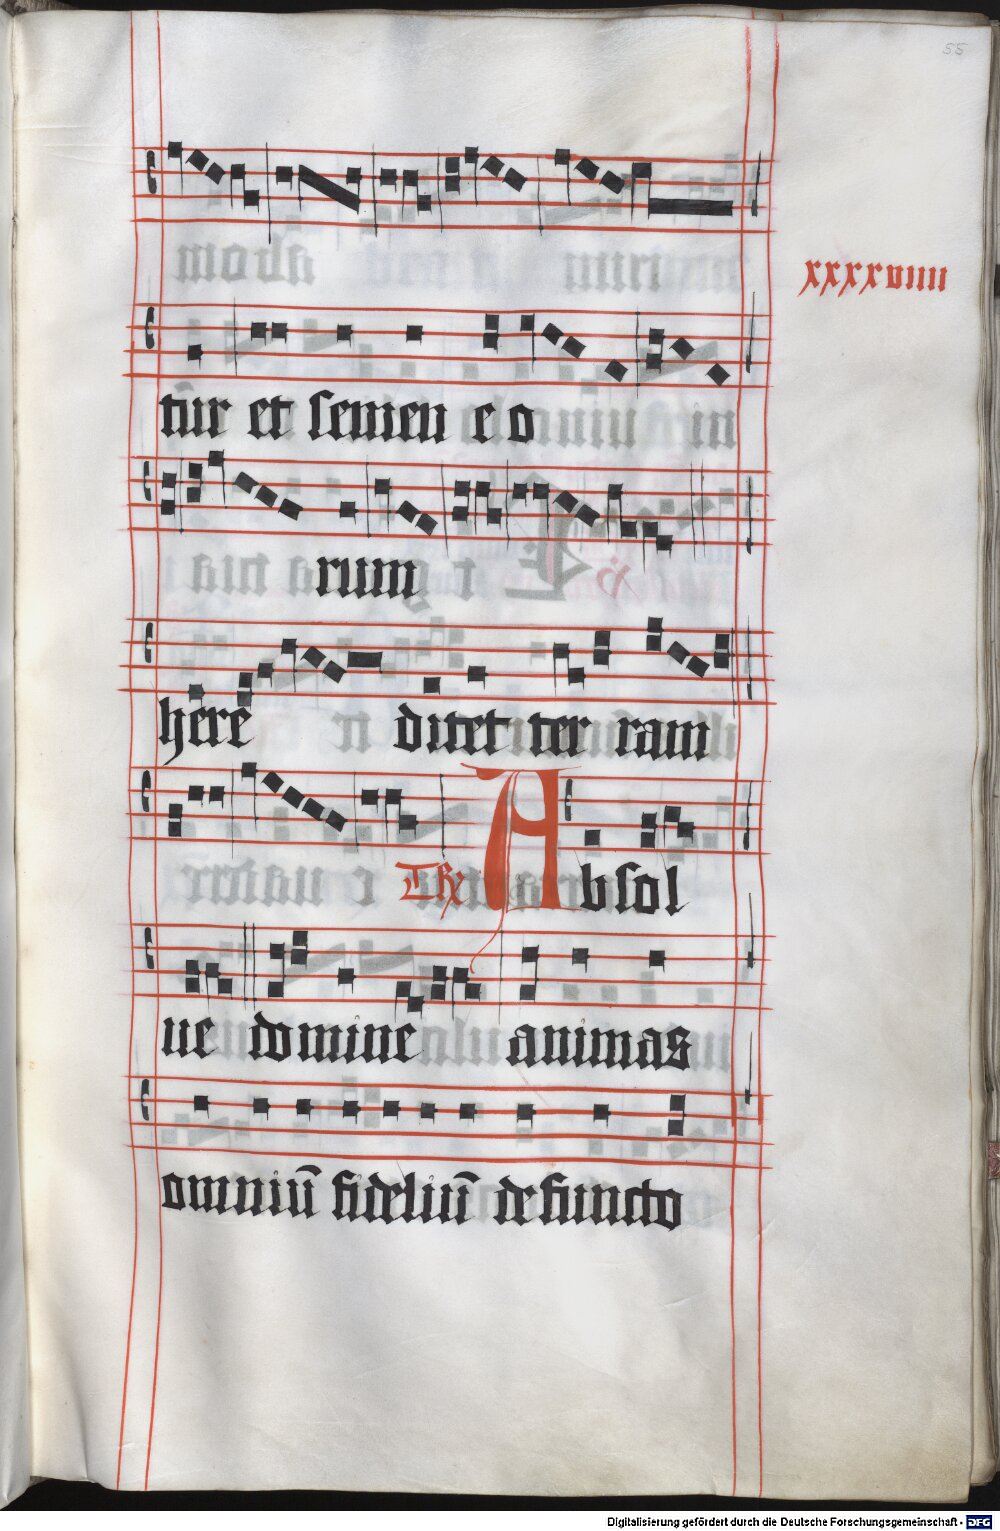 55
xxxxviiii
tur et semen e o
rum
here ditet ter ram
Absol
ue domine animas
omniū fideliū defuncto
Digitalisierung gefördert durch die Deutsche Forschungsgemeinschaft - DFG